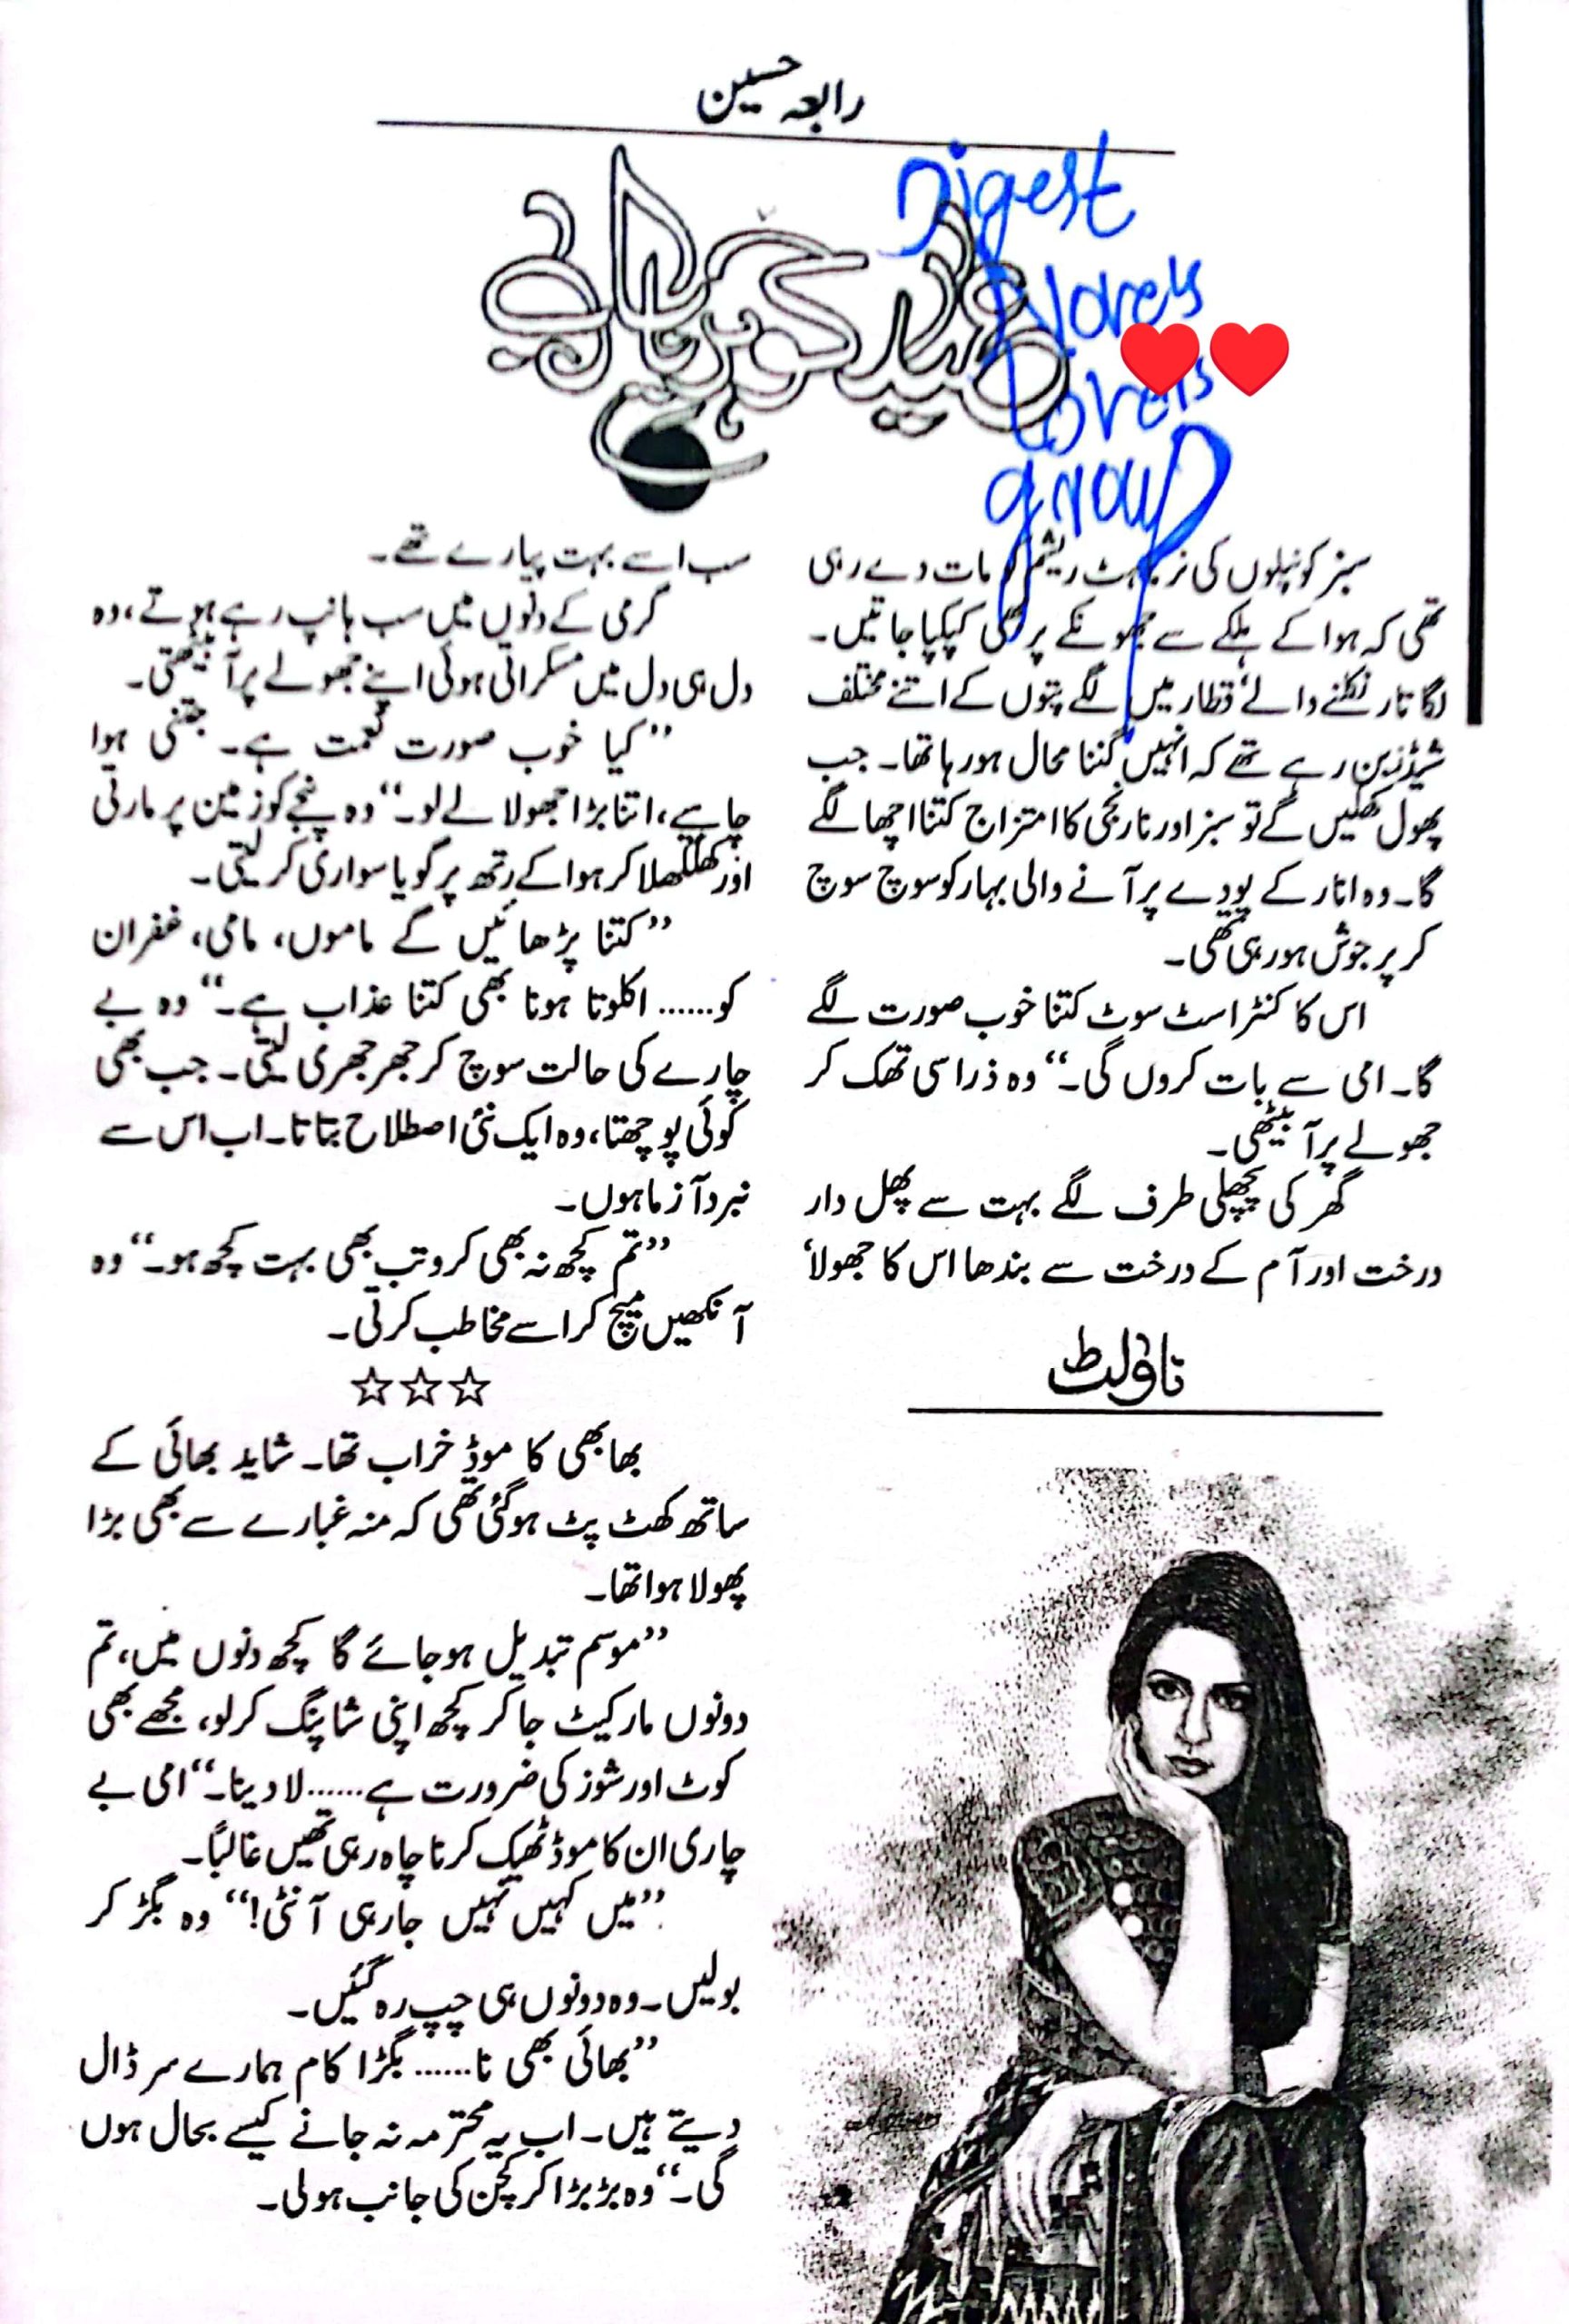 رابعہ حسین
Digest
Novels
Lovers
group
سبز کونپلوں کی نرماہٹ ریشم کو مات دے رہی
تھی کہ ہوا کے ہلکے سے جھونکے پر بھی کپکپا جاتیں۔
لگاتار نکلنے والے‘ قطار میں لگے پتوں کے اتنے مختلف
شیڈز بن رہے تھے کہ انہیں گننا محال ہو رہا تھا۔ جب
پھول کھلیں گے تو سبز اور نارنجی کا امتزاج کتنا اچھا لگے
گا۔ وہ انار کے پودے پر آنے والی بہار کو سوچ سوچ
کر پرجوش ہو رہی تھی۔
اس کا کنٹراسٹ سوٹ کتنا خوب صورت لگے
گا۔ امی سے بات کروں گی۔“ وہ ذرا سی تھک کر
جھولے پر آ بیٹھی۔
گھر کی پچھلی طرف لگے بہت سے پھل دار
درخت اور آم کے درخت سے بندھا اس کا جھولا‘
ناولٹ
سب اسے بہت پیارے تھے۔
گرمی کے دنوں میں سب ہانپ رہے ہوتے، وہ
دل ہی دل میں مسکراتی ہوئی اپنے جھولے پر آ بیٹھتی۔
”کیا خوب صورت نعمت ہے۔ جتنی ہوا
چاہیے، اتنا بڑا جھولا لے لو۔“ وہ پنجے کو زمین پر مارتی
اور کھلکھلا کر ہوا کے رتھ پر گویا سواری کر لیتی۔
”کتنا پڑھائیں گے ماموں، مامی، غفران
کو...... اکلوتا ہونا بھی کتنا عذاب ہے۔“ وہ بے
چارے کی حالت سوچ کر جھرجھری لیتی۔ جب بھی
کوئی پوچھتا، وہ ایک نئی اصطلاح بتاتا۔ اب اس سے
نبرد آزما ہوں۔
”تم کچھ نہ بھی کرو تب بھی بہت کچھ ہو۔“ وہ
آنکھیں میچ کر اسے مخاطب کرتی۔
☆☆☆
بھابھی کا موڈ خراب تھا۔ شاید بھائی کے
ساتھ کھٹ پٹ ہوگئی تھی کہ منہ غبارے سے بھی بڑا
پھولا ہوا تھا۔
”موسم تبدیل ہو جائے گا کچھ دنوں میں، تم
دونوں مارکیٹ جا کر کچھ اپنی شاپنگ کر لو، مجھے بھی
کوٹ اور شوز کی ضرورت ہے...... لا دینا۔“ امی بے
چاری ان کا موڈ ٹھیک کرنا چاہ رہی تھیں غالباً۔
”میں کہیں نہیں جا رہی آنٹی!“ وہ بگڑ کر
بولیں۔ وہ دونوں ہی چپ رہ گئیں۔
”بھائی بھی نا...... بگڑا کام ہمارے سر ڈال
دیتے ہیں۔ اب یہ محترمہ نہ جانے کیسے بحال ہوں
گی۔“ وہ بڑبڑا کر کچن کی جانب ہولی۔